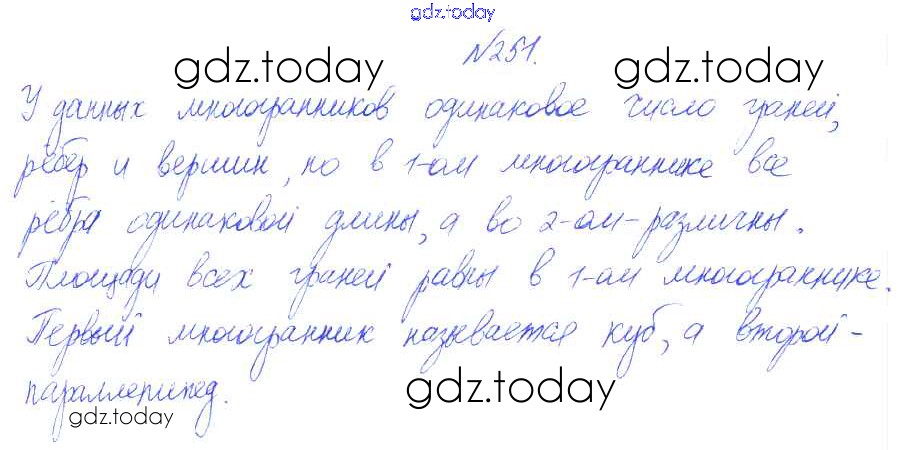 gdz.today
№251.
gdz.today gdz.today
У данных многогранников одинаковое число граней,
рёбер и вершин, но в 1-ом многограннике все
рёбра одинаковой длины, а во 2-ом - различны.
Площади всех граней равны в 1-ом многограннике.
Первый многогранник называется куб, а второй -
параллепипед.
gdz.today
gdz.today